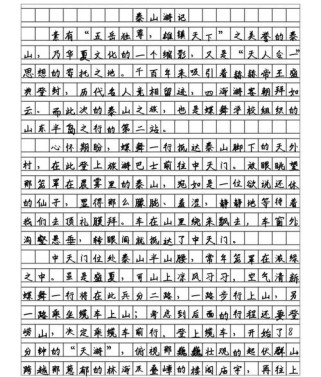 泰山游记
素有“五岳独尊，雄镇天下”之美誉的泰
山，乃华夏文化的一个缩影，又是“天人合一”
思想的寄托之地。千百年来吸引着 帝王盛
典登封，历代名人竞相留迹，四海游客朝拜如
云。而此次的泰山之旅，也是蝶舞学校组织的
山东半岛之行的第二站。
心怀期盼，蝶舞一行抵达泰山脚下的天外
村，在此登上旅游巴士前往中天门。放眼眺望
那笼罩在晨雾里的泰山，宛如是一位欲说还休
的仙子，显得那么朦胧、羞涩，静静地等待着
我们去顶礼膜拜。车在山里绕来飘去，车窗外
沟壑悬垂，转眼间就抵达了中天门。
中天门位处泰山半山腰，常年笼罩在派绿
之中。虽是盛夏，可山上凉风习习，空气清新
蝶舞一行将在此兵分二路，一路步行上山，另
一路乘坐缆车上山；考虑到后面的行程还要登
崂山，决定乘缆车前行。登上缆车，开始了8
分钟的“天游”，俯视那巍巍壮观的起伏群山
跨越那葱郁的林海及叠嶂的楼阁庙宇，再往上